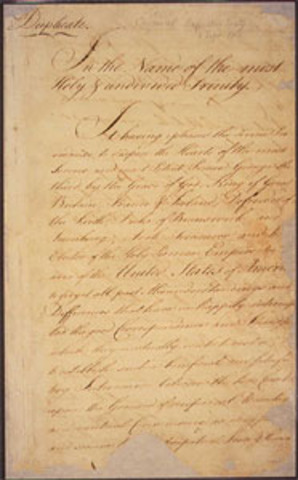 Duplicate.
In the Name of the most
Holy & undivided Trinity.
It having pleased the divine Pro-
vidence to dispose the Hearts of the most
Serene and most Potent Prince George the
third, by the Grace of God, King of Great
Britain, France & Ireland, Defender of
the Faith, Duke of Brunswick and
Luneburg, Arch Treasurer and
Elector of the Holy Roman Empire
of the United States of America
to forget all past Misunderstandings and
Differences that have unhappily
the good Correspondence and Friendship
which they mutually wish to
to establish such a beneficial and satisfac-
tory Intercourse between the two
upon the Ground of reciprocal
and mutual Convenience as may
and secure perpetual Peace &